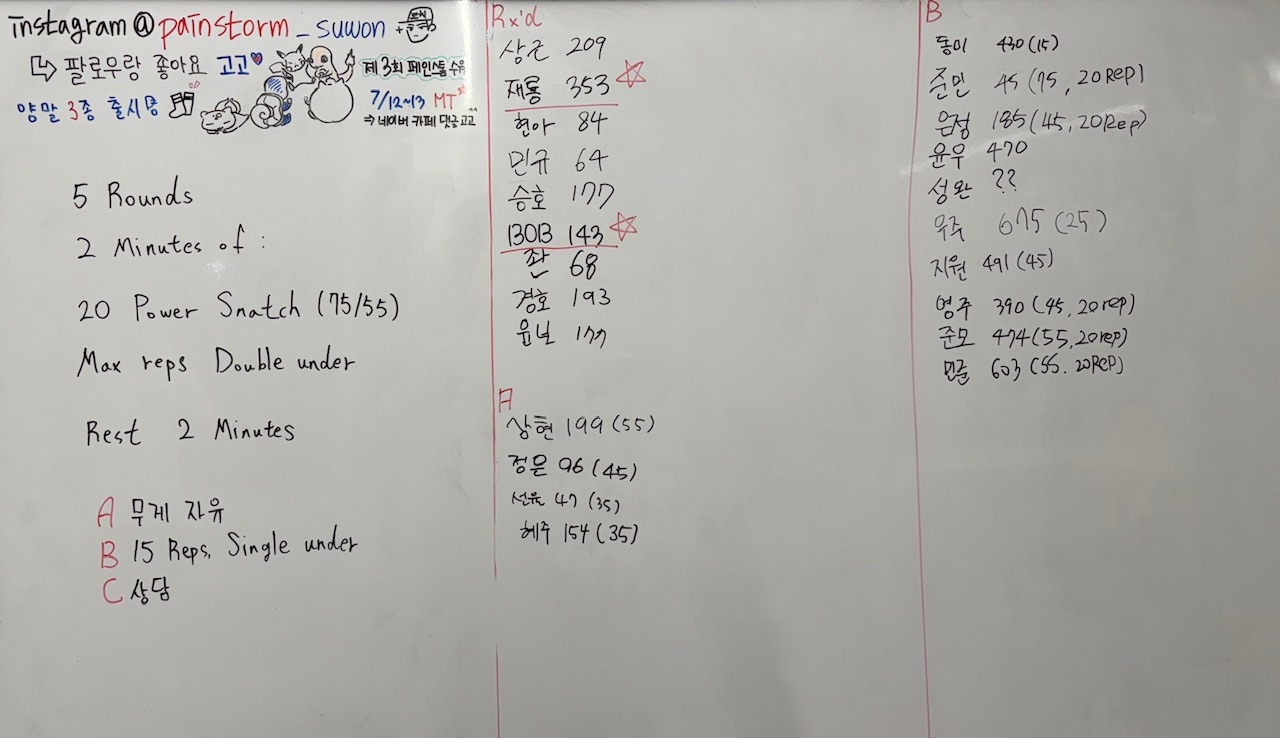 instagram@painstorm_suwon +
↳ 팔로우랑 좋아요 고고♥
양말 3종 출시중
제 3회 페인스톰 수유
7/12~13 MT
⇒ 네이버 카페 댓글 고고
5 Rounds
2 Minutes of :
20 Power Snatch (75/55)
Max reps Double under
Rest 2 Minutes
A 무게 자유
B 15 Reps, Single under
C 상담
Rx'd
상근 209
재룡 353
현아 84
민규 64
승호 177
BOB 143
좐 68
경호 193
177
A
상현 199 (55)
정은 96 (45)
선윤 47 (35)
혜주 154 (35)
B
동미 430 (15)
준민 45 (75, 20 Rep)
은정 185 (45, 20 Rep)
윤우 470
성완 ??
우주 675 (25)
지원 491 (45)
영주 390 (45, 20 rep)
준모 474 (55, 20 rep)
민준 603 (55. 20 Rep)